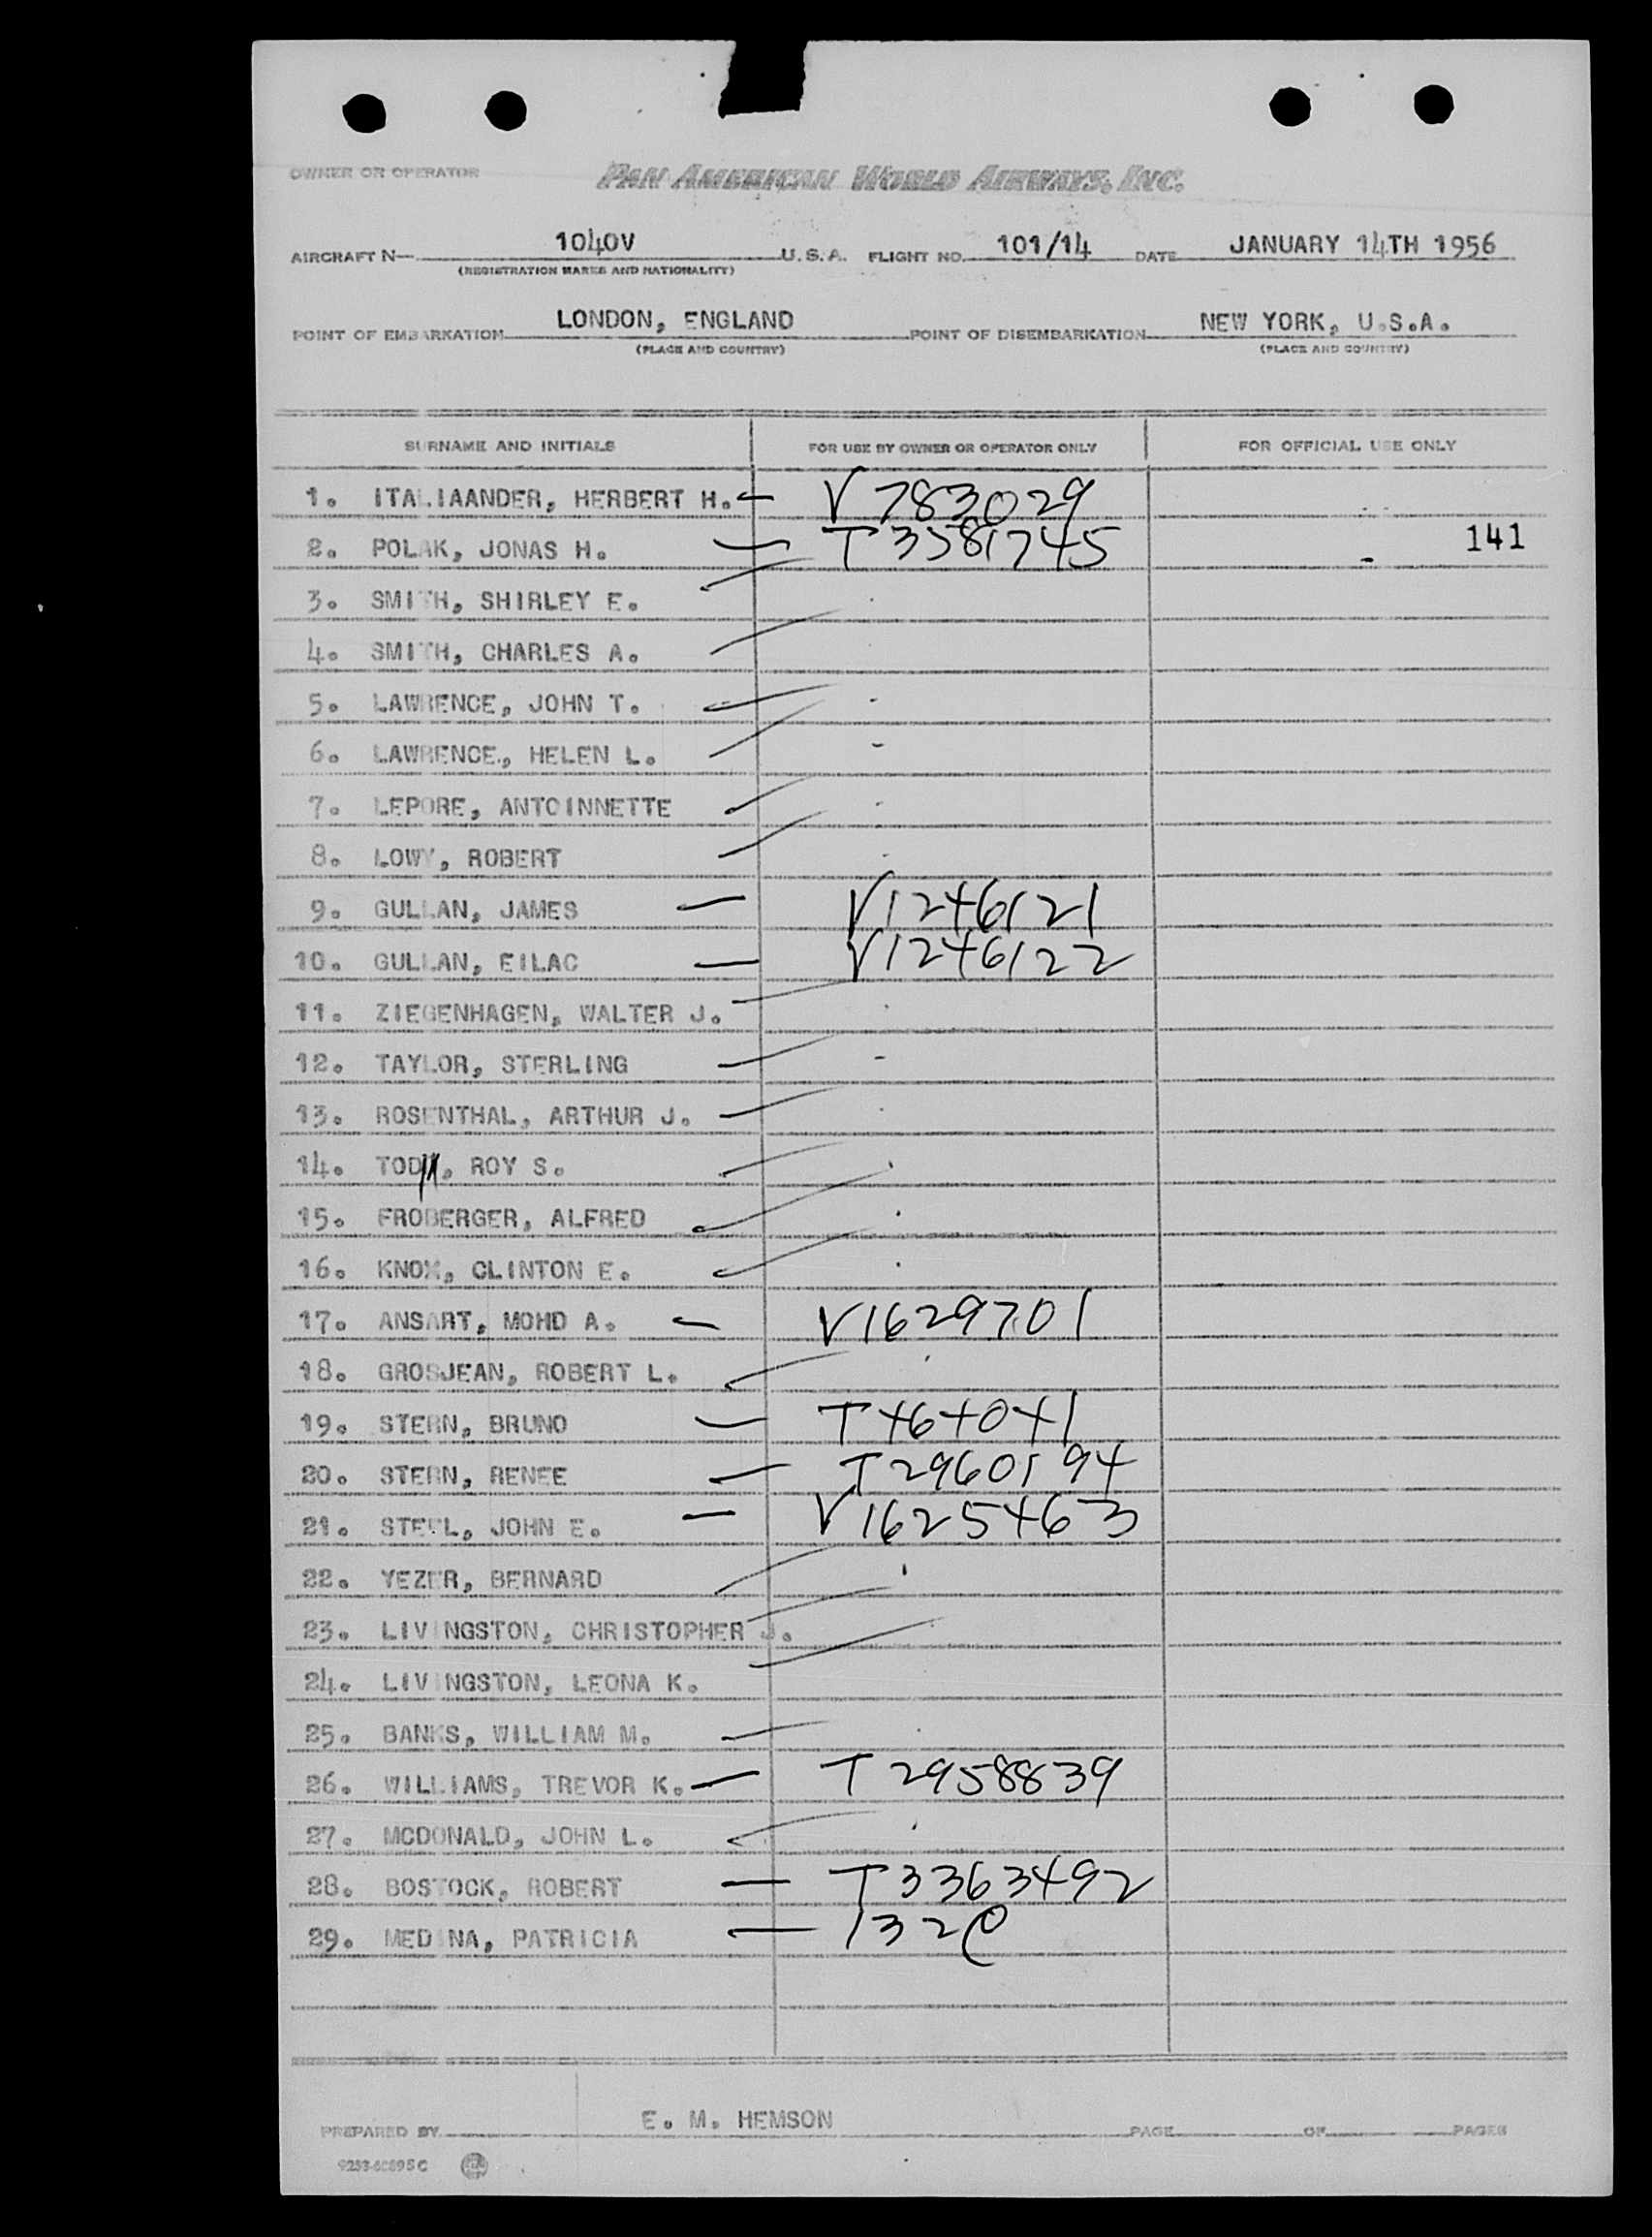 OWNER OR OPERATOR PAN AMERICAN WORLD AIRWAYS, INC.
AIRCRAFT N- 1040V U.S.A. FLIGHT NO. 101/14 DATE JANUARY 14TH 1956
(REGISTRATION MARKS AND NATIONALITY)
POINT OF EMBARKATION LONDON, ENGLAND POINT OF DISEMBARKATION NEW YORK, U.S.A.
(PLACE AND COUNTRY) (PLACE AND COUNTRY)
SURNAME AND INITIALS FOR USE BY OWNER OR OPERATOR ONLY FOR OFFICIAL USE ONLY
1. ITALIAANDER, HERBERT H. — V783029
2. POLAK, JONAS H. — T3581745 141
3. SMITH, SHIRLEY E.
4. SMITH, CHARLES A.
5. LAWRENCE, JOHN T.
6. LAWRENCE, HELEN L.
7. LEPORE, ANTOINNETTE
8. LOWY, ROBERT
9. GULLAN, JAMES — V1246121
10. GULLAN, EILAC — V1246122
11. ZIEGENHAGEN, WALTER J.
12. TAYLOR, STERLING
13. ROSENTHAL, ARTHUR J.
14. TODD, ROY S.
15. FROBERGER, ALFRED
16. KNOX, CLINTON E.
17. ANSART, MOHD A. — V1629701
18. GROSJEAN, ROBERT L.
19. STERN, BRUNO — T464041
20. STERN, RENEE — T2960594
21. STEEL, JOHN E. — V1625463
22. YEZER, BERNARD
23. LIVINGSTON, CHRISTOPHER J.
24. LIVINGSTON, LEONA K.
25. BANKS, WILLIAM M.
26. WILLIAMS, TREVOR K. — T2958839
27. MCDONALD, JOHN L.
28. BOSTOCK, ROBERT — T3363492
29. MEDINA, PATRICIA — 132
PREPARED BY E. M. HEMSON PAGE OF PAGES